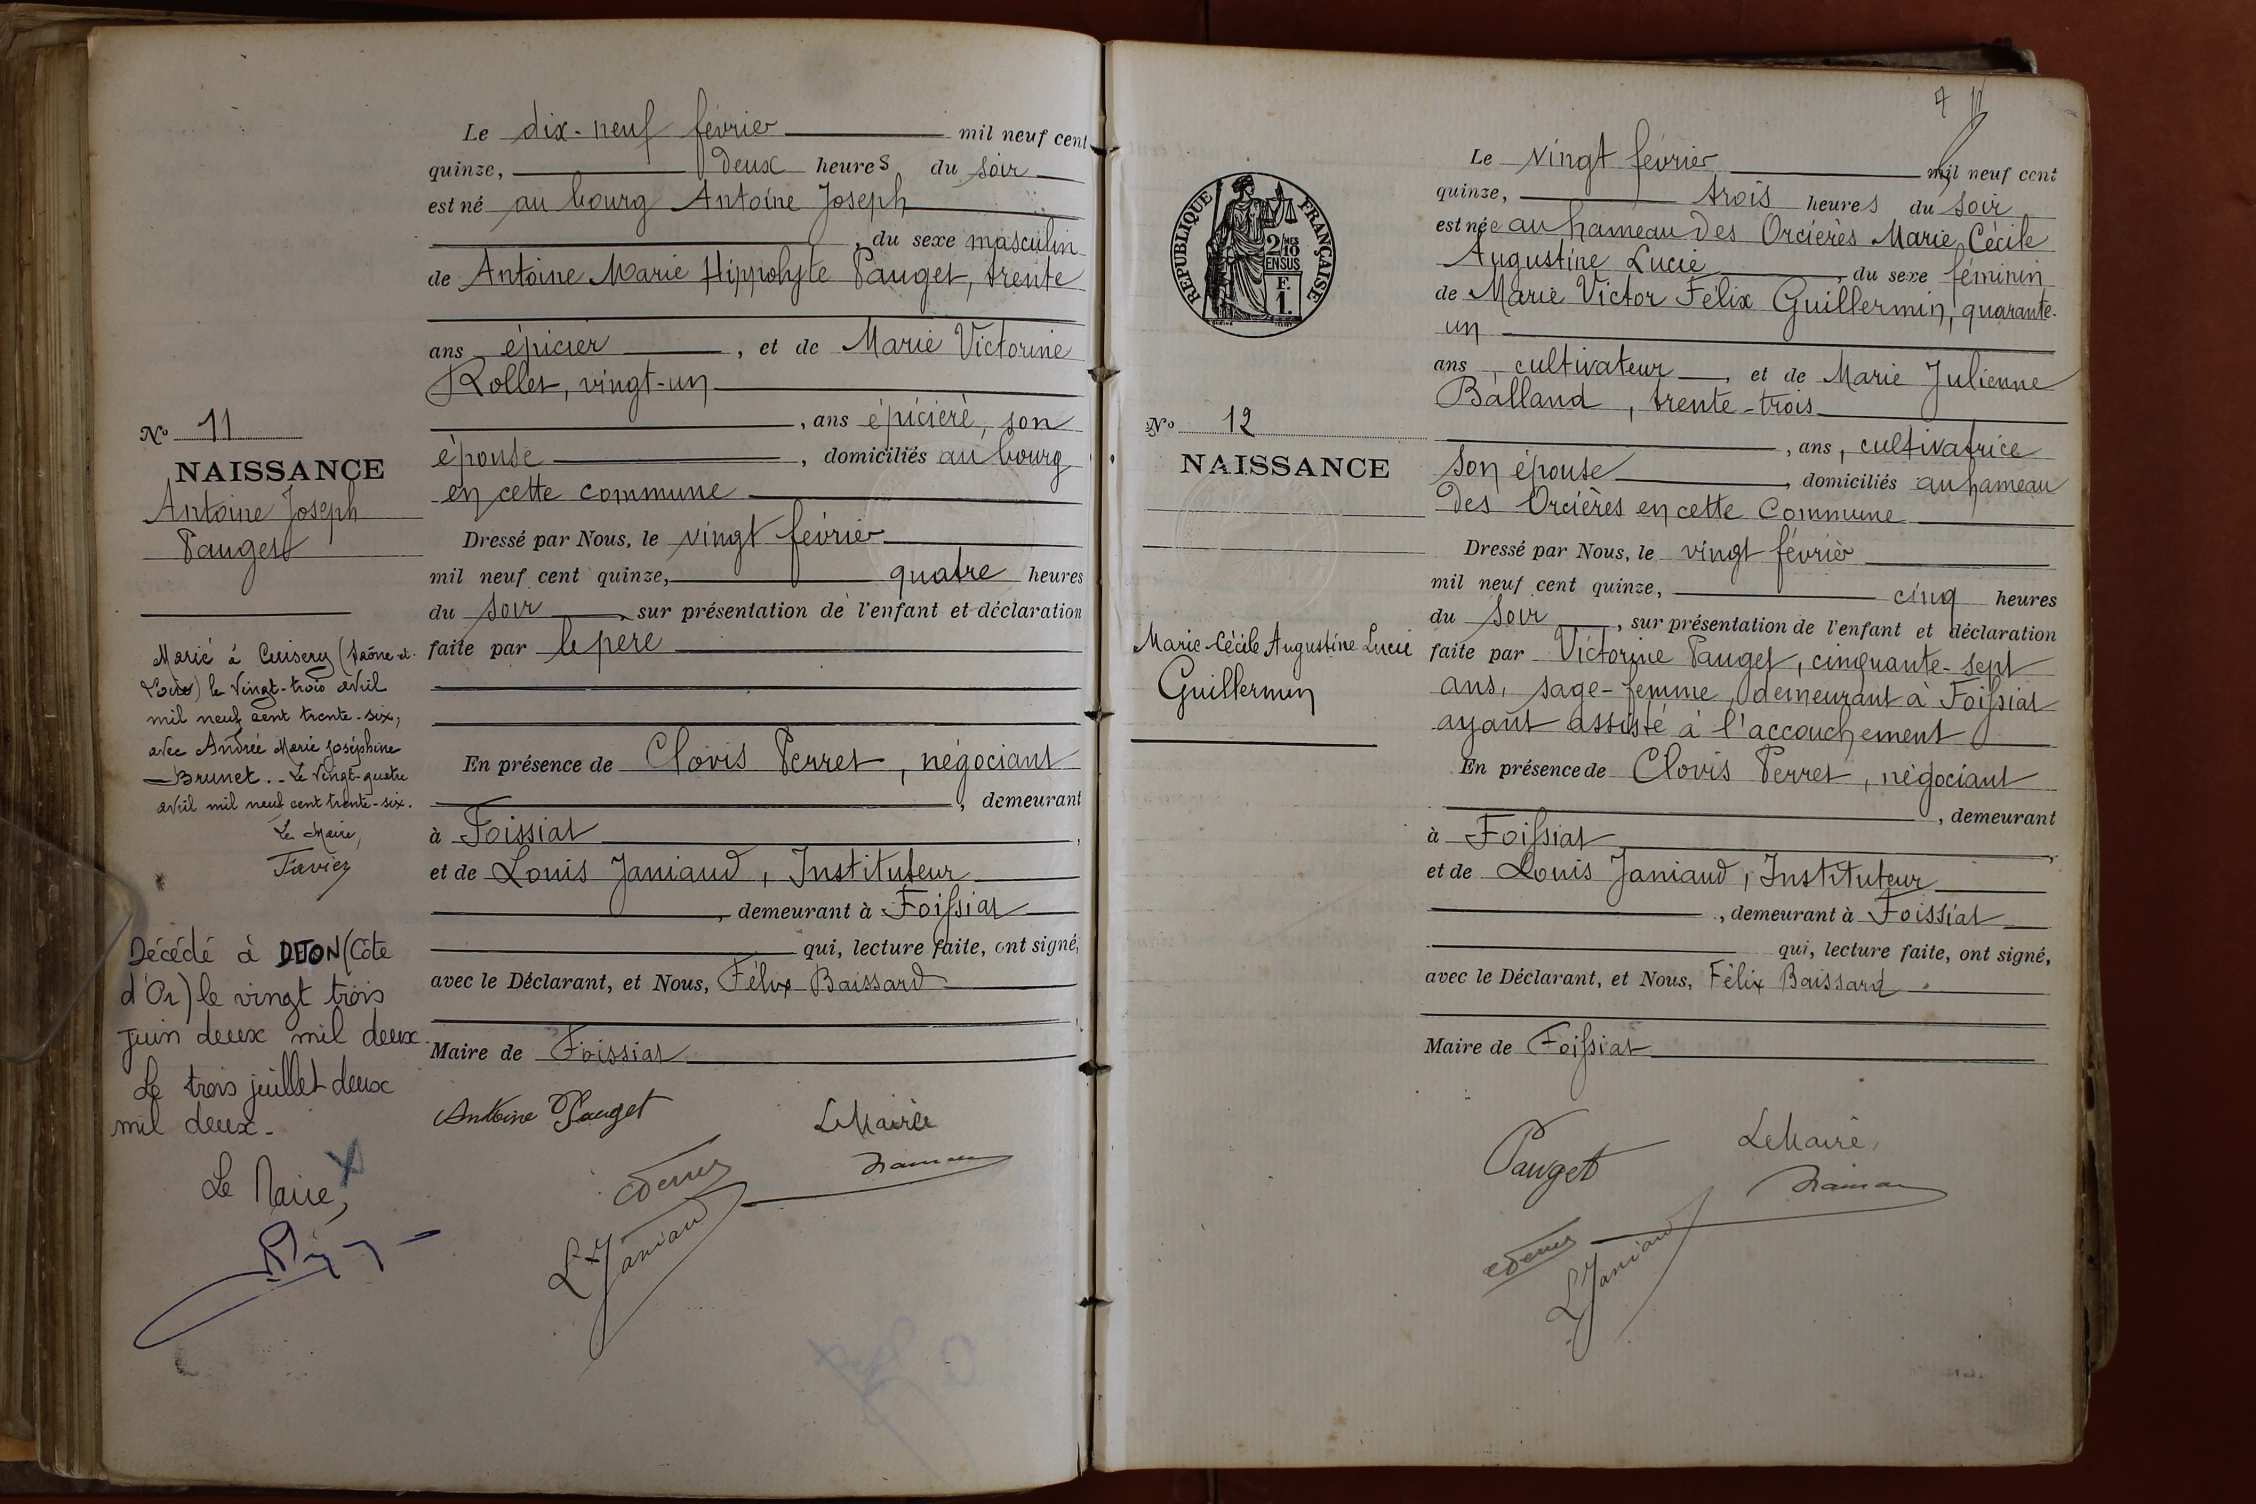 Le dix-neuf février mil neuf cent
quinze, deux heures du soir
est né au bourg Antoine Joseph
, du sexe masculin
de Antoine Marie Hippolyte Pauget, trente
ans épicier , et de Marie Victorine
Rollet, vingt-un
, ans épicière, son
épouse , domiciliés au bourg
en cette commune
Dressé par Nous, le vingt février
mil neuf cent quinze, quatre heures
du soir , sur présentation de l'enfant et déclaration
faite par le père
En présence de Clovis Perret, négociant
, demeurant
à Foissiat ,
et de Louis Janiaud, Instituteur
, demeurant à Foissiat
qui, lecture faite, ont signé,
avec le Déclarant, et Nous, Félix Baissard
Maire de Foissiat
Antoine Pauget
Le Maire
L Janiaud
No 11
NAISSANCE
Antoine Joseph
Pauget
Marié à Cuisery (Saône-et-
Loire) le vingt-trois avril
mil neuf cent trente-six,
avec Andrée Marie Joséphine
Brunet. - Le vingt-quatre
avril mil neuf cent trente-six.
Le Maire,
Favier
Décédé à DIJON (Côte
d'Or) le vingt trois
juin deux mil deux.
Le trois juillet deux
mil deux.
Le Maire,
7
Le vingt février mil neuf cent
quinze, trois heures du soir
est née au hameau des Orcières Marie Cécile
Augustine Lucie , du sexe féminin
de Marie Victor Félix Guillermin, quarante-
un
ans , cultivateur , et de Marie Julienne
Balland, trente-trois
, ans, cultivatrice
son épouse , domiciliés au hameau
des Orcières en cette Commune
Dressé par Nous, le vingt février
mil neuf cent quinze, cinq heures
du soir , sur présentation de l'enfant et déclaration
faite par Victorine Pauget, cinquante-sept
ans, sage-femme, demeurant à Foissiat
ayant assisté à l'accouchement
En présence de Clovis Perret, négociant
, demeurant
à Foissiat ,
et de Louis Janiaud, Instituteur
, demeurant à Foissiat
qui, lecture faite, ont signé,
avec le Déclarant, et Nous, Félix Baissard
Maire de Foissiat
Pauget
Le Maire,
L Janiaud
RÉPUBLIQUE FRANÇAISE
2/MES
10
EN SUS
F.
1.
No 12
NAISSANCE
Marie Cécile Augustine Lucie
Guillermin